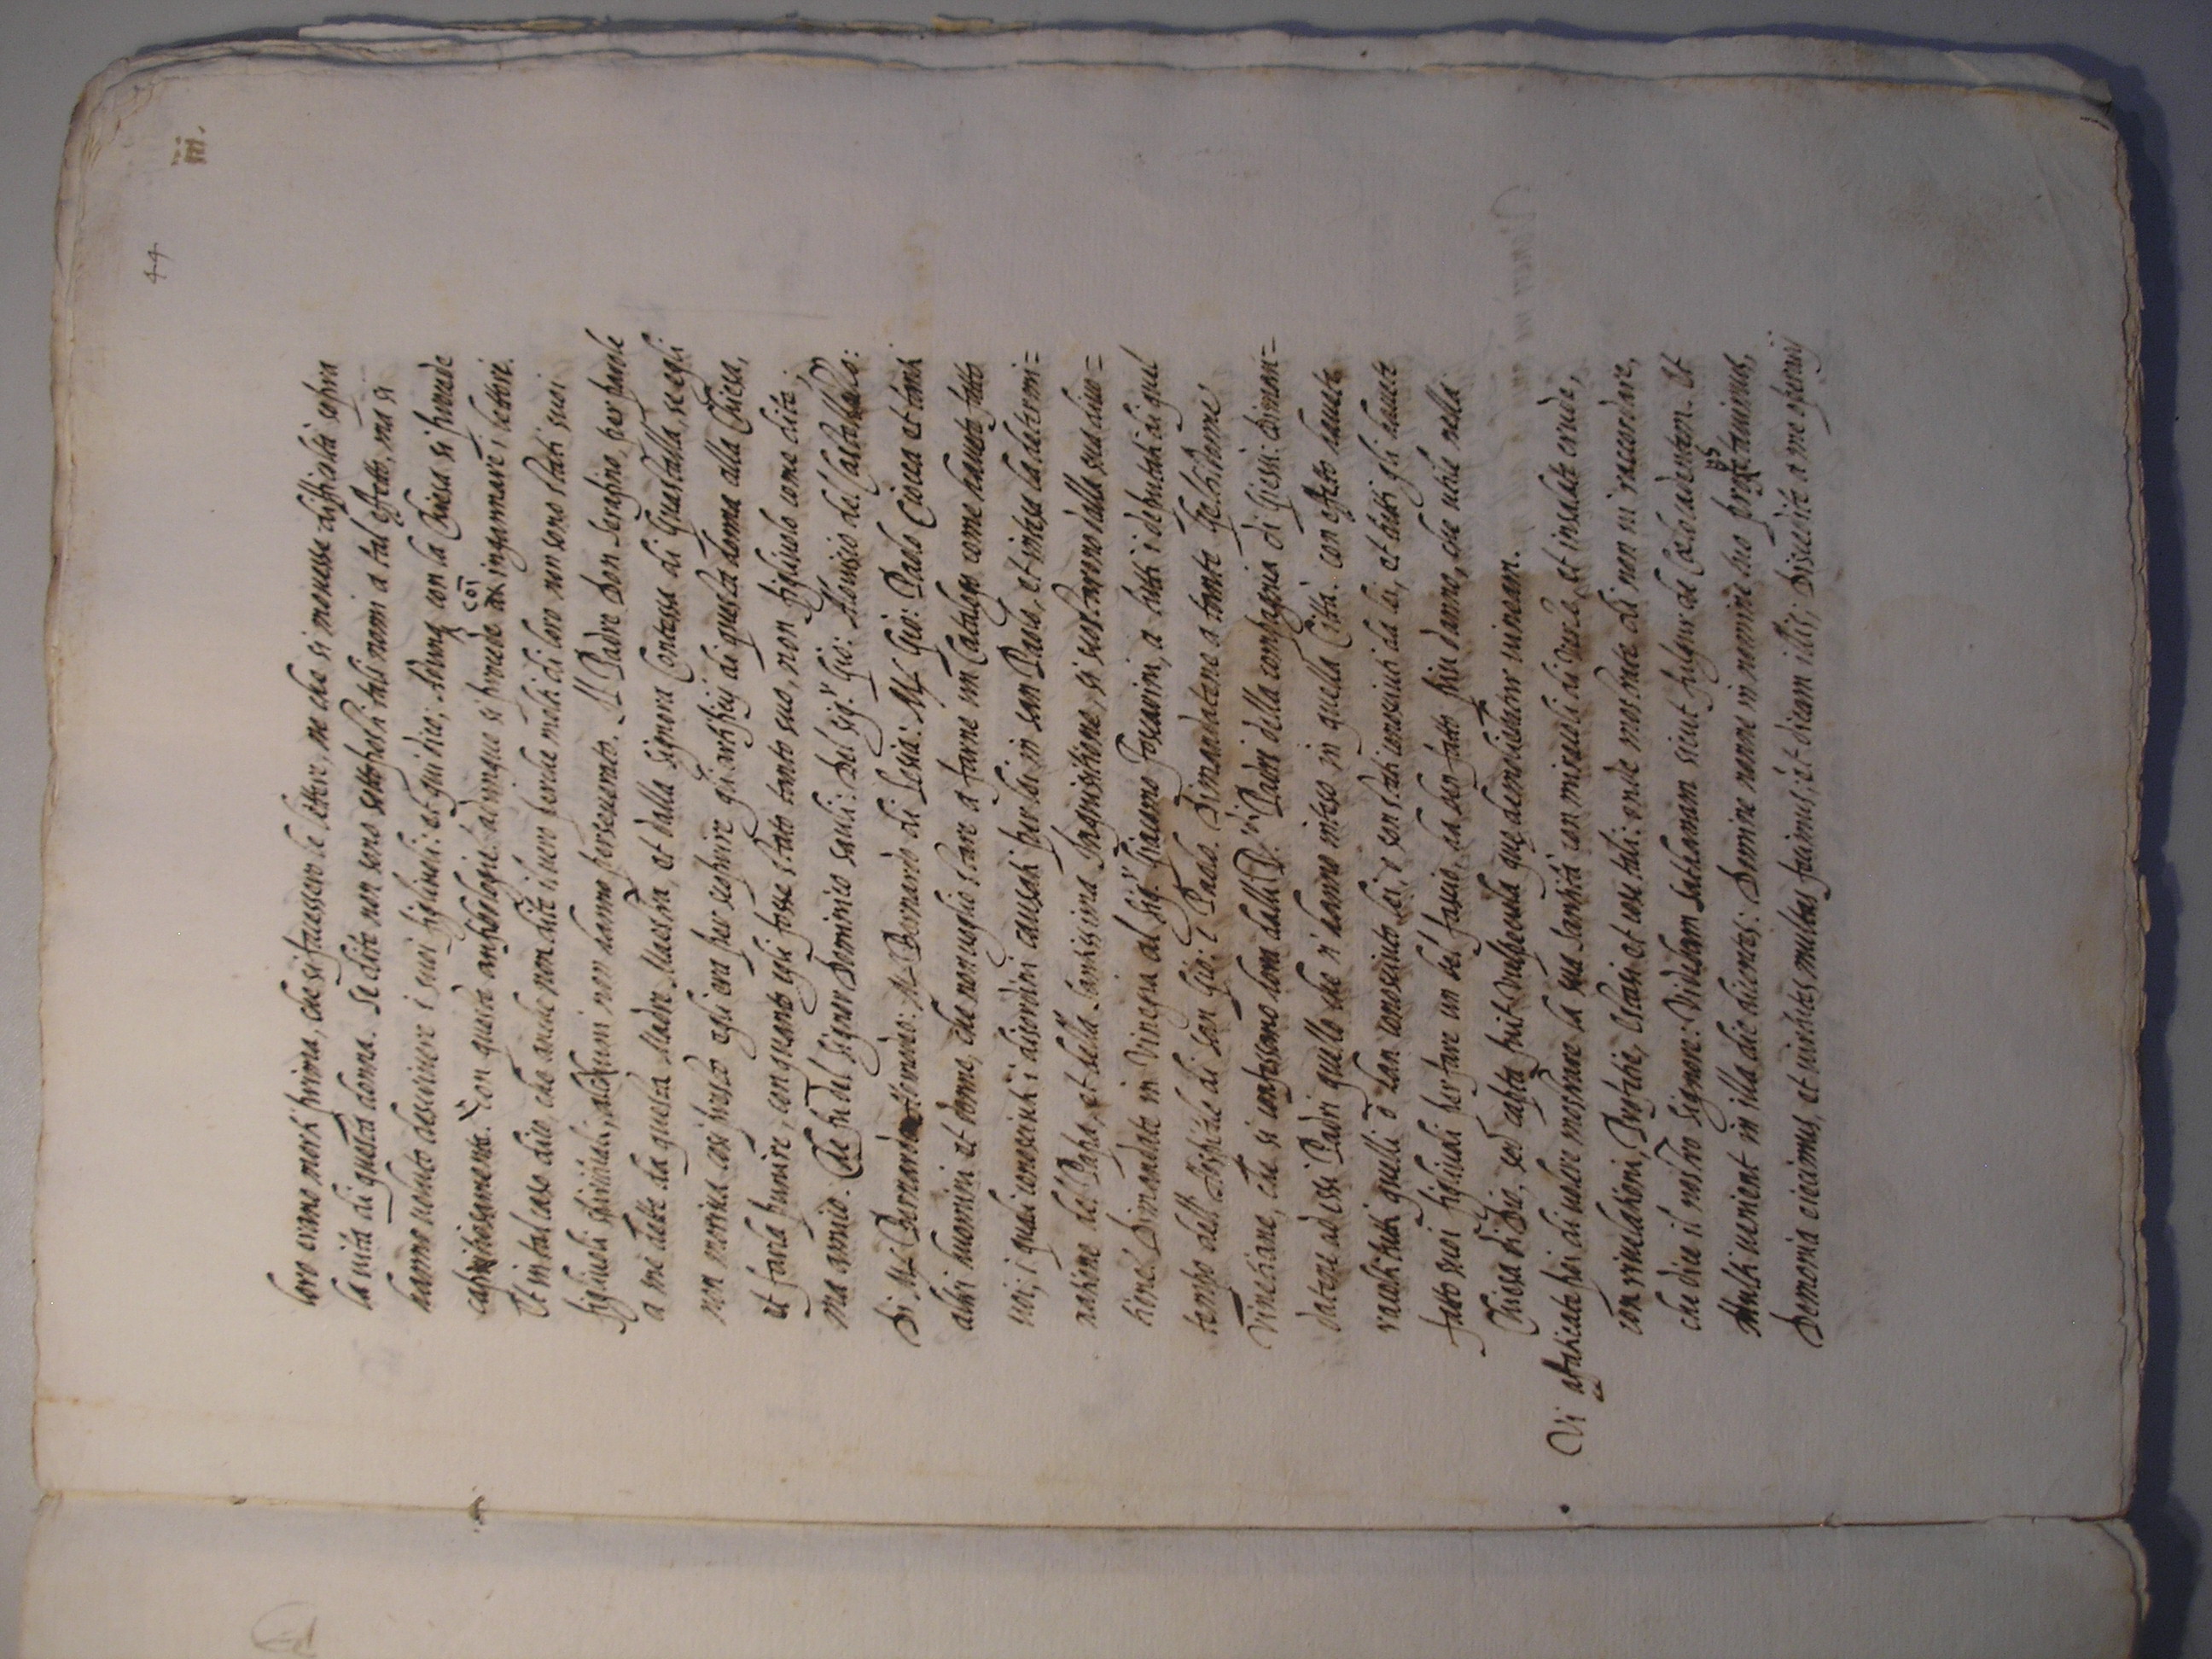 44
iiii.
loro erano morti prima, che si facessero le lettere, ne che si mouesse difficultà sopra
la uita di questa donna. Se dite non sono sottoposti tali nomi a tal effetto, ma si
hanno uoluto descriuere i suoi figliuoli: et qui dico; Adunq con la Chiesa si procede
capitiosamente. Con queste amphibologie adunque si procede con ingannare i lettori.
Et in tal caso dico, che anche non dite il uero perche molti di loro non sono stati suoi
figliuoli spirituali, alchuni non hanno perseuerato. Il Padre Don Serafino, per parole
a me dette da questa Madre Maestra, et dalla Signora Contessa di Guastalla, se egli
non moriua cosi presto egli era per scoprire gli artificij di questa donna alla Chiesa,
et farla punire, con quanto egli fosse stato tanto suo, non figliuolo come dite,
ma amico. Che fu del Signor Dominico Sauli: Del Sigr Gio: Alouisio del Castaldo:
Di M. Bernardo: M. Bernardo di Pesia: M. Gio: Paolo Ciocca et tanti
altri huomini et donne, che non uoglio stare a farne un Catalogo come hauete fatto
uoi; i quali conosciuti i disordini causati per lei in san Paolo, et intesa la determi=
natione del Papa, et della Santissima Inquisitione, si scostarono dalla sua diuo=
tione. Dimandate in Vinegia al Sigr Giacomo Foscarini, a tutti i deputati di quel
tempo dell' Hospitale di San Gio: et Paolo. Dimandatene a tante Gentildonne
Vinetiane, che si confessano hora dalli R.di Padri della compagnia di Giesu: diman=
datene ad essi Padri quello che n' hanno inteso in quella Città. con effetto hauete
racolti tutti quelli o han conosciuto lei, o son stati conosciuti da lei, et tutti gli hauete
fatto suoi figliuoli per fare un bel fascio, da poter fare piu danno, che utile nella
Chiesa di Dio, sed capta fuit Vulpecula que demoliebatur uineam.
Vi affaticate poi di uolere mostrare la sua santità con miracoli di uerze, et insalate crude,
con riuelationi, Profetie, Estasi et cose tali: onde mostrate di non ui racordare,
che dice il nostro Signore: Videbam Sathanam sicut fulgur de Caelo cadentem. Et
Multi uenient in illa die dicentes: Domine nonne in nomine tuo prophetauimus,
Demonia eiecimus, et uirtutes multas fecimus; et dicam illis; Discedite a me operarij